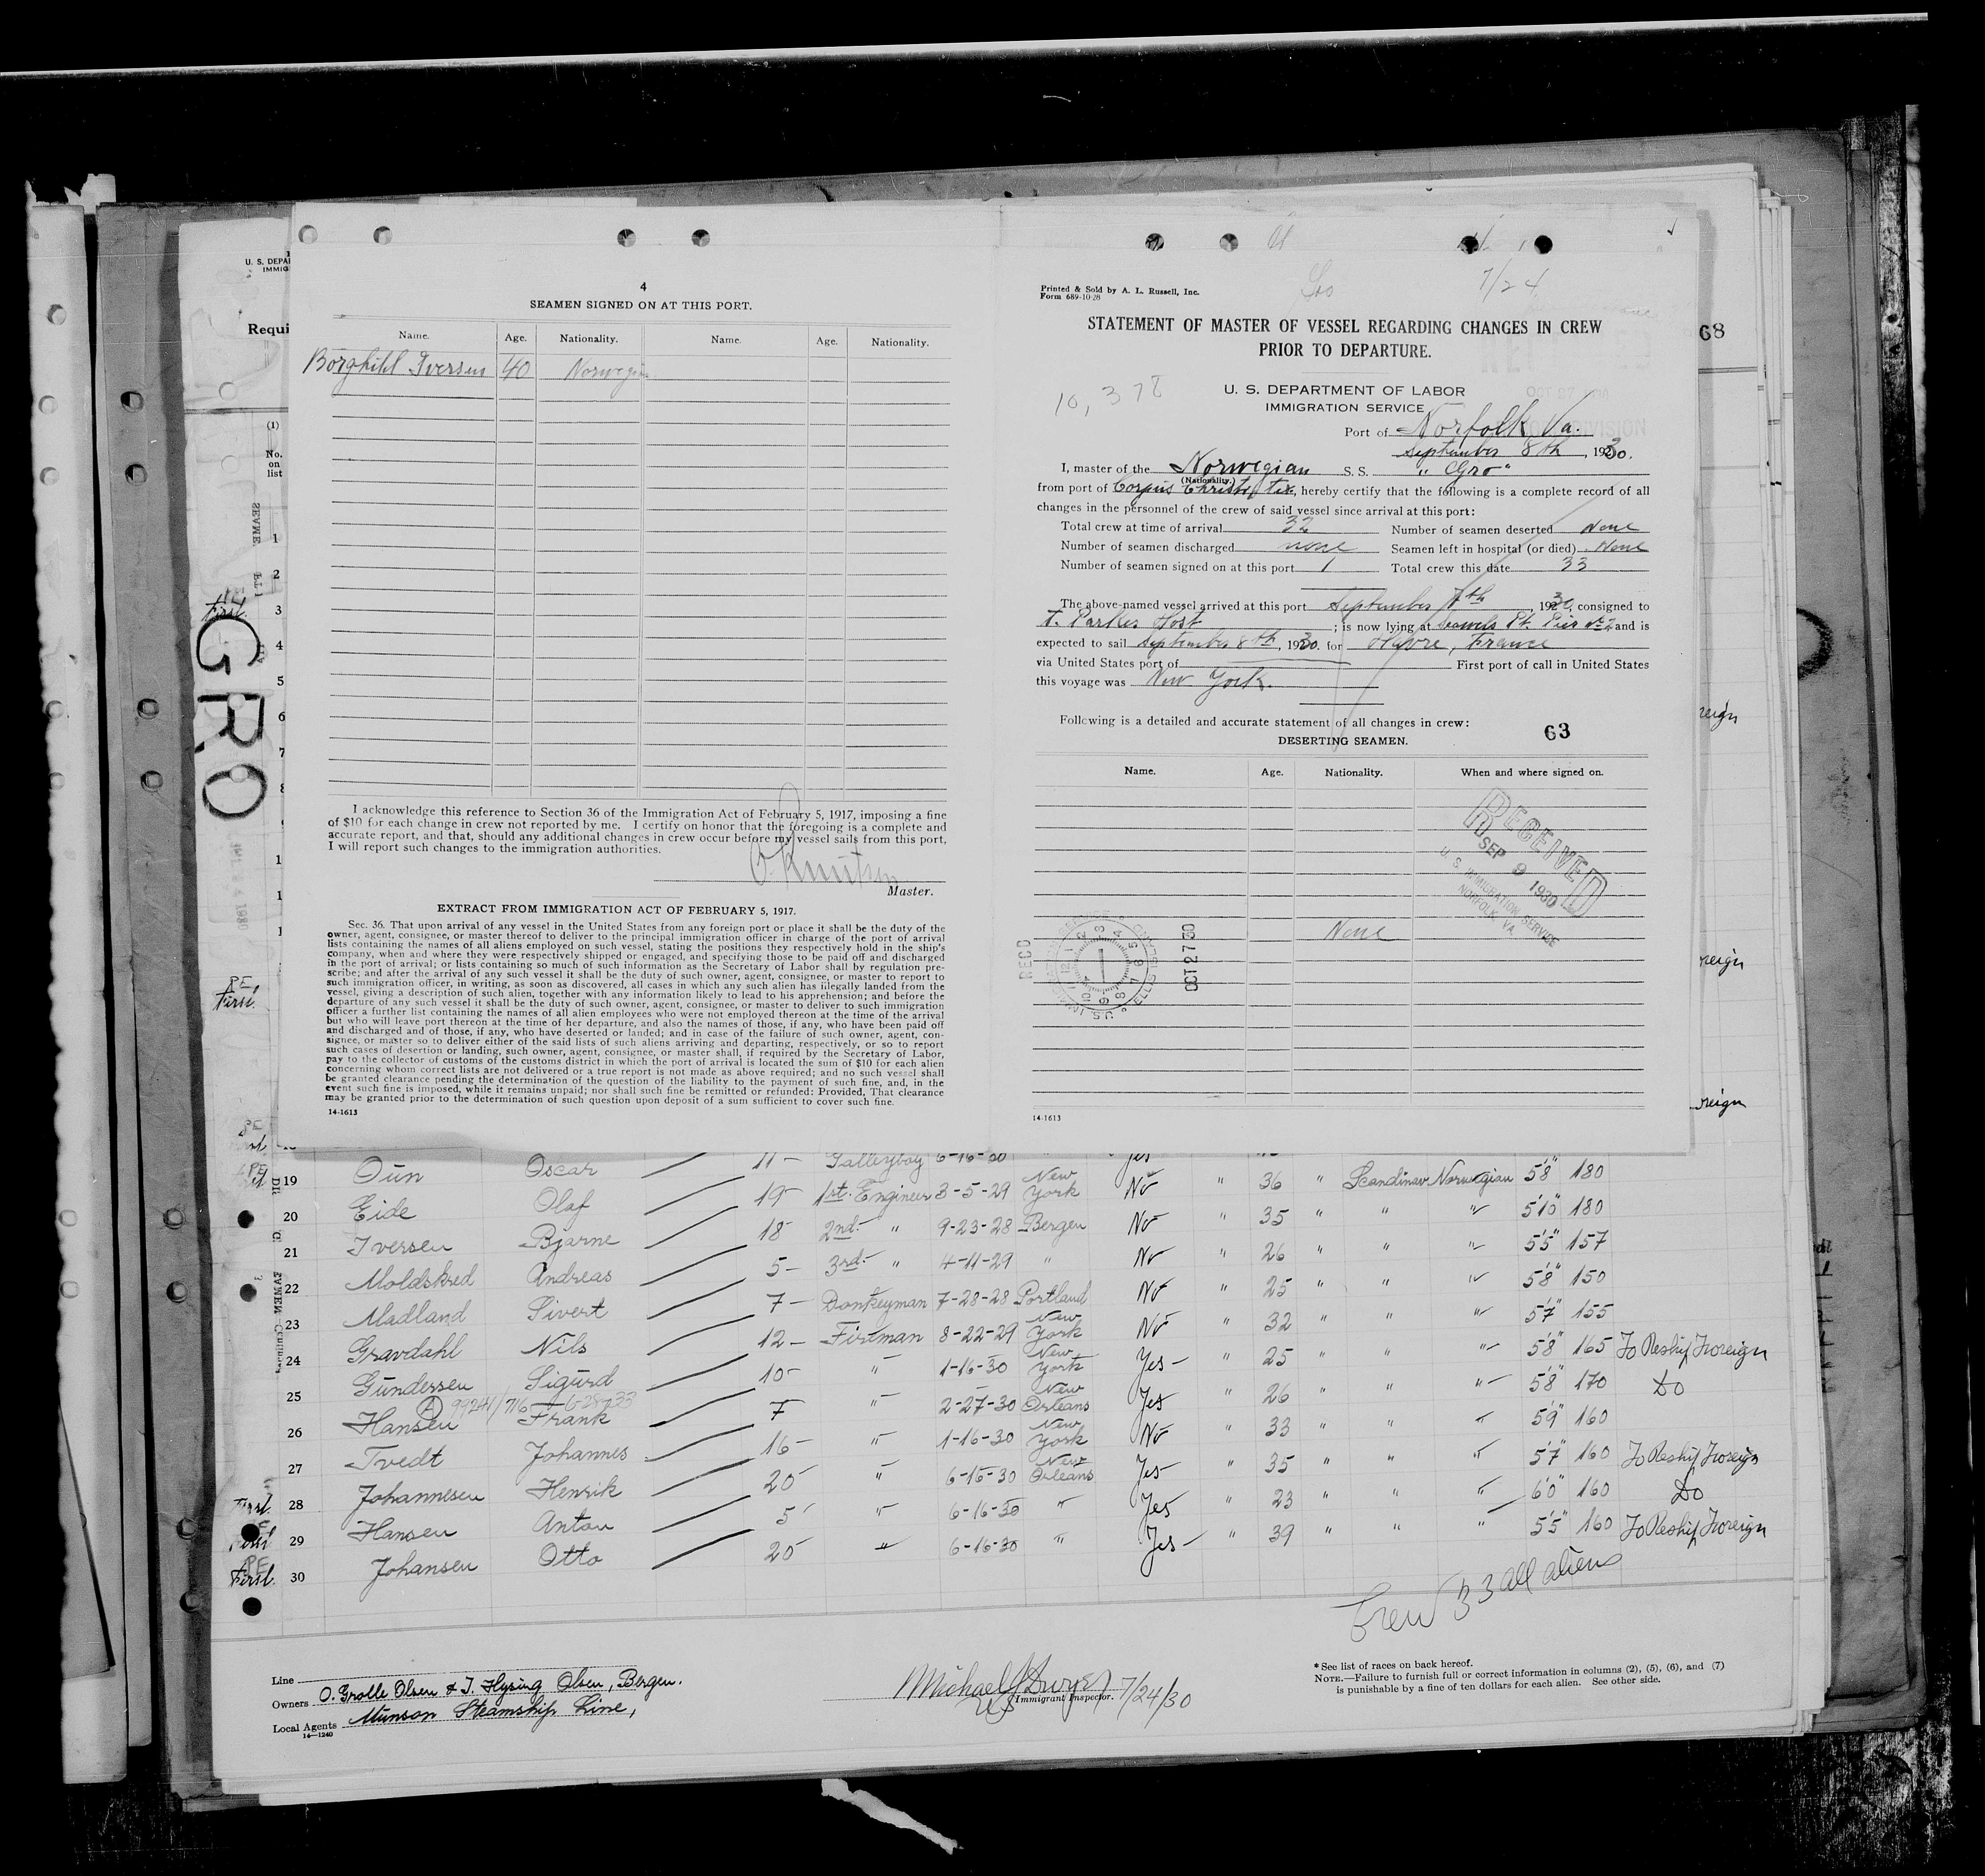 4
SEAMEN SIGNED ON AT THIS PORT.
Name. Age. Nationality. Name. Age. Nationality.
Borghild Iversen 40 Norwegian
I acknowledge this reference to Section 36 of the Immigration Act of February 5, 1917, imposing a fine
of $10 for each change in crew not reported by me. I certify on honor that the foregoing is a complete and
accurate report, and that, should any additional changes in crew occur before my vessel sails from this port,
I will report such changes to the immigration authorities.
O. Knutsen
Master.
EXTRACT FROM IMMIGRATION ACT OF FEBRUARY 5, 1917.
Sec. 36. That upon arrival of any vessel in the United States from any foreign port or place it shall be the duty of the
owner, agent, consignee, or master thereof to deliver to the principal immigration officer in charge of the port of arrival
lists containing the names of all aliens employed on such vessel, stating the positions they respectively hold in the ship's
company, when and where they were respectively shipped or engaged, and specifying those to be paid off and discharged
in the port of arrival; or lists containing so much of such information as the Secretary of Labor shall by regulation pre-
scribe; and after the arrival of any such vessel it shall be the duty of such owner, agent, consignee, or master to report to
such immigration officer, in writing, as soon as discovered, all cases in which any such alien has illegally landed from the
vessel, giving a description of such alien, together with any information likely to lead to his apprehension; and before the
departure of any such vessel it shall be the duty of such owner, agent, consignee, or master to deliver to such immigration
officer a further list containing the names of all alien employees who were not employed thereon at the time of the arrival
but who will leave port thereon at the time of her departure, and also the names of those, if any, who have been paid off
and discharged and of those, if any, who have deserted or landed; and in case of the failure of such owner, agent, con-
signee, or master so to deliver either of the said lists of such aliens arriving and departing, respectively, or so to report
such cases of desertion or landing, such owner, agent, consignee, or master shall, if required by the Secretary of Labor,
pay to the collector of customs of the customs district in which the port of arrival is located the sum of $10 for each alien
concerning whom correct lists are not delivered or a true report is not made as above required; and no such vessel shall
be granted clearance pending the determination of the question of the liability to the payment of such fine, and, in the
event such fine is imposed, while it remains unpaid; nor shall such fine be remitted or refunded: Provided, That clearance
may be granted prior to the determination of such question upon deposit of a sum sufficient to cover such fine.
14-1613
Printed & Sold by A. L. Russell, Inc.
Form 689-10-28
Gro 7/24
STATEMENT OF MASTER OF VESSEL REGARDING CHANGES IN CREW
PRIOR TO DEPARTURE.
U. S. DEPARTMENT OF LABOR
IMMIGRATION SERVICE
Port of Norfolk Va.
September 8th, 1930.
I, master of the Norwegian S. S. "Gro"
(Nationality.)
from port of Corpus Christi, Tex, hereby certify that the following is a complete record of all
changes in the personnel of the crew of said vessel since arrival at this port:
Total crew at time of arrival 32 Number of seamen deserted None
Number of seamen discharged none Seamen left in hospital (or died) None
Number of seamen signed on at this port 1 Total crew this date 33
The above-named vessel arrived at this port September 7th, 1930, consigned to
T. Parker Host; is now lying at Sewels Pt. Pier No 2 and is
expected to sail September 8th, 1930. for Havre, France
via United States port of First port of call in United States
this voyage was New York.
Following is a detailed and accurate statement of all changes in crew:
63
DESERTING SEAMEN.
Name. Age. Nationality. When and where signed on.
None
RECEIVED
SEP 9 1930
U. S. IMMIGRATION SERVICE
NORFOLK, VA.
REC'D
OCT 27 30
14-1613
U. S. DEPA
IMMIG
Requi
68
(1)
No.
on
list
GRO
19 Oün Oscar 11 Galleyboy 6-16-30 Yes
20 Eide Olaf 19 1st. Engineer 3-5-29 New York No " 36 " Scandinav Norwegian 5'8" 180
21 Iversen Bjarne 18 2nd. " 9-23-28 Bergen No " 35 " " " 5'10" 180
22 Moldskred Andreas 5 3rd. " 4-11-29 " No " 26 " " " 5'5" 157
23 Madland Sivert 7 Donkeyman 7-28-28 Portland No " 25 " " " 5'8" 150
24 Gravdahl Nils 12 Fireman 8-22-29 New York No " 32 " " " 5'7" 155
25 Gündersen Sigurd 10 " 1-16-30 New York Yes " 25 " " " 5'8" 165 To Reship Foreign
26 Hansen Frank 7 " 2-27-30 New Orleans Yes " 26 " " " 5'8" 170 Do
27 Tvedt Johannes 16 " 1-16-30 New York No " 33 " " " 5'9" 160
28 Johannesen Henrik 20 " 6-16-30 New Orleans Yes " 35 " " " 5'7" 160 To Reship Foreign
29 Hansen Anton 5 " 6-16-30 " Yes " 23 " " " 6'0" 160 Do
30 Johansen Otto 20 " 6-16-30 " Yes " 39 " " " 5'5" 160 To Reship Foreign
Crew 33 all aliens
Line
Owners O. Grolle Olsen & I. Hysing Olsen, Bergen.
Local Agents Munson Steamship Line,
14-1240
Michael J Dwyer 7/24/30
US Immigrant Inspector.
*See list of races on back hereof.
NOTE.—Failure to furnish full or correct information in columns (2), (5), (6), and (7)
is punishable by a fine of ten dollars for each alien. See other side.